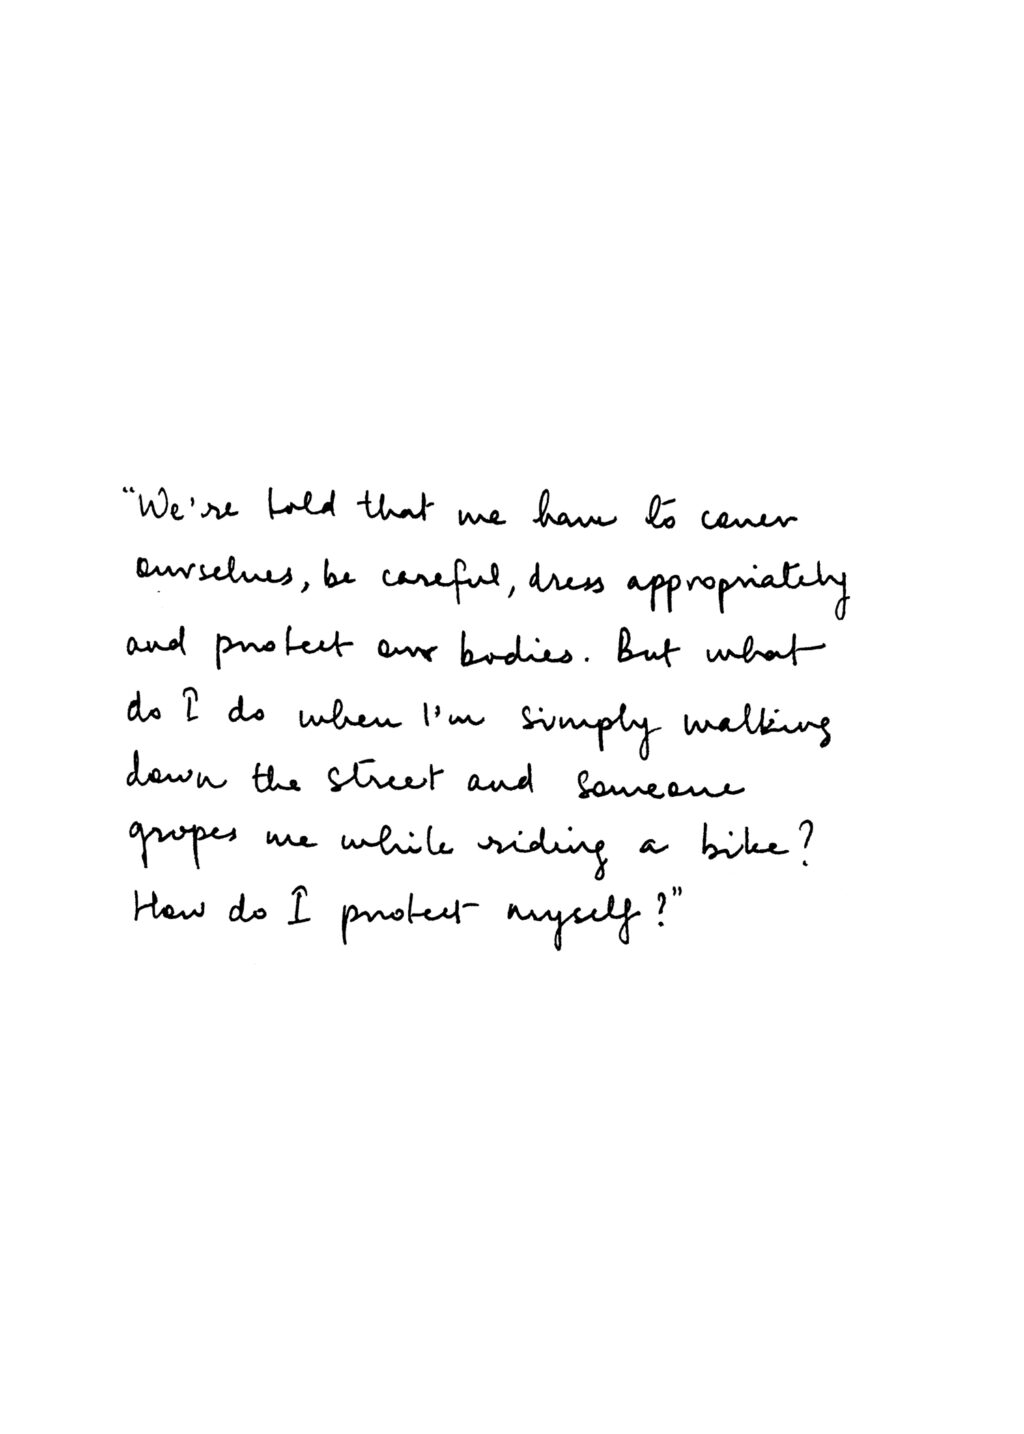 "We're told that we have to cover
ourselves, be careful, dress appropriately
and protect our bodies. But what
do I do when I'm simply walking
down the street and someone
gropes me while riding a bike?
How do I protect myself?"